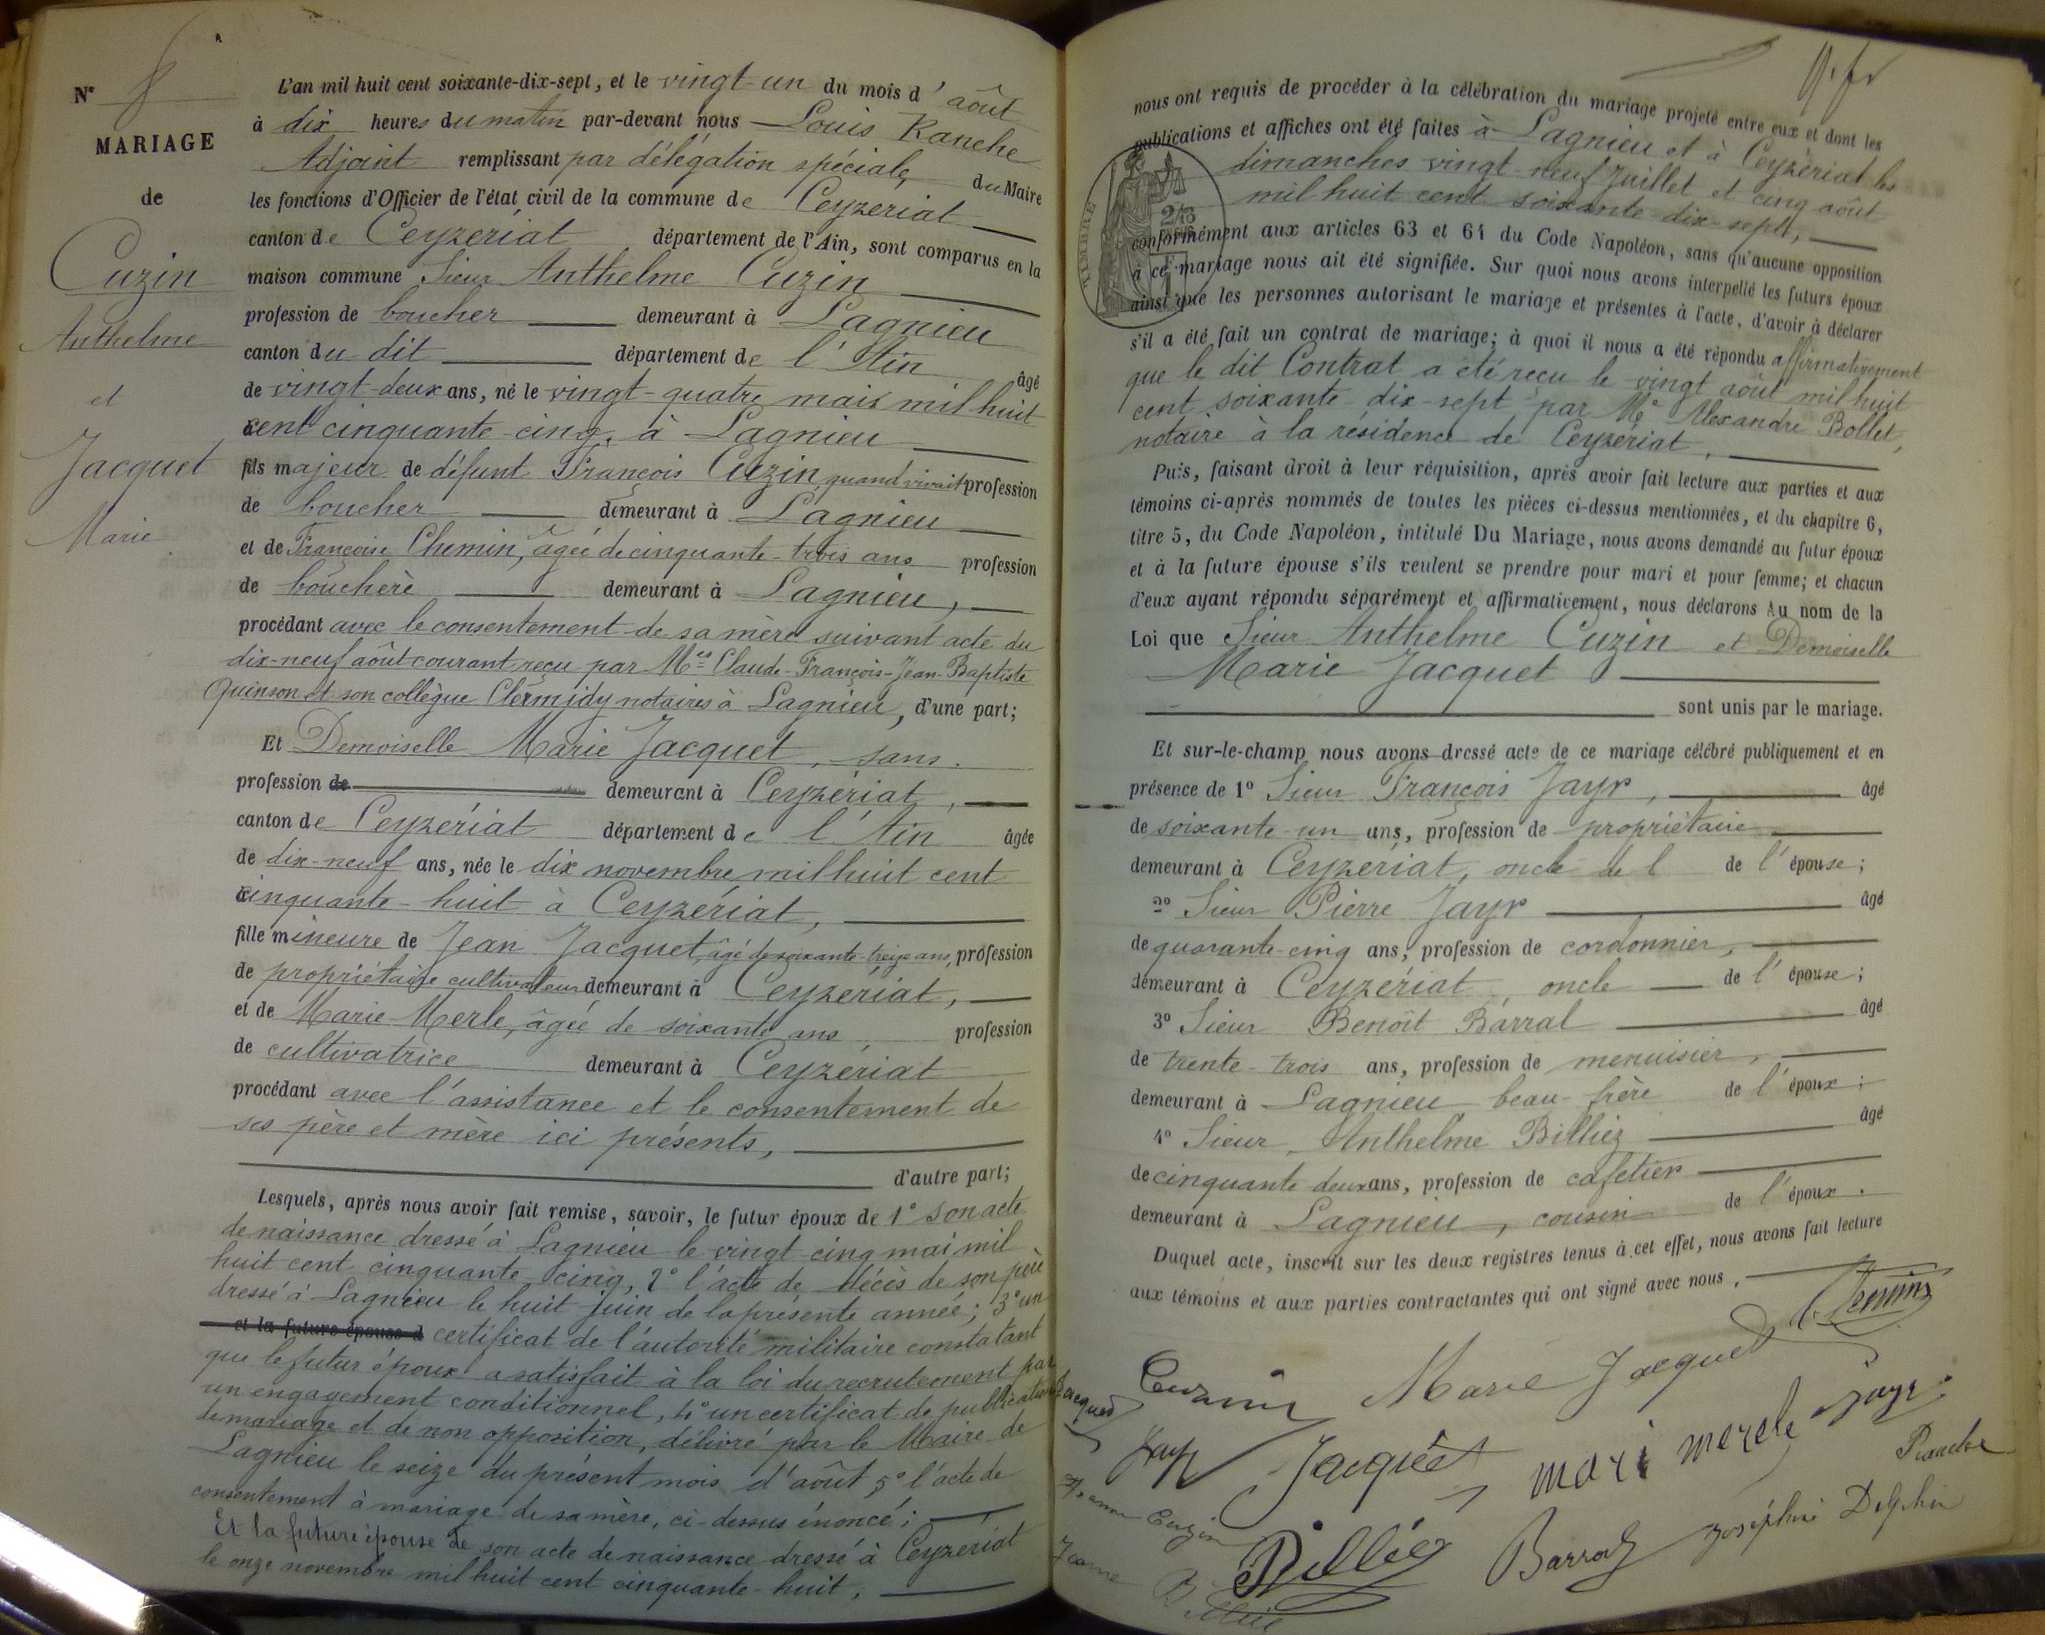 N° 8
MARIAGE
de
Cuzin
Anthelme
et
Jacquet
Marie
L'an mil huit cent soixante-dix-sept, et le vingt-un du mois d'août
à dix heures du matin par-devant nous Louis Ranche
Adjoint remplissant par délégation spéciale du Maire
les fonctions d'Officier de l'état civil de la commune de Ceyzériat
canton de Ceyzériat département de l'Ain, sont comparus en la
maison commune Sieur Anthelme Cuzin
profession de boucher demeurant à Lagnieu
canton du dit département de l'Ain âgé
de vingt-deux ans, né le vingt-quatre mai mil huit
cent cinquante-cinq, à Lagnieu
fils majeur de défunt François Cuzin quand vivait profession
de boucher demeurant à Lagnieu
et de Françoise Chemin, âgée de cinquante-trois ans profession
de bouchère demeurant à Lagnieu,
procédant avec le consentement de sa mère suivant acte du
dix-neuf août courant reçu par Mes Claude-François-Jean-Baptiste
Quinson et son collègue Clermidy notaires à Lagnieu, d'une part;
Et Demoiselle Marie Jacquet, sans
profession de demeurant à Ceyzériat,
canton de Ceyzériat département de l'Ain âgée
de dix-neuf ans, née le dix novembre mil huit cent
cinquante-huit à Ceyzériat,
fille mineure de Jean Jacquet, âgé de soixante-treize ans, profession
de propriétaire cultivateur demeurant à Ceyzériat,
et de Marie Merle, âgée de soixante ans profession
de cultivatrice demeurant à Ceyzériat
procédant avec l'assistance et le consentement de
ses père et mère ici présents,
d'autre part;
Lesquels, après nous avoir fait remise, savoir, le futur époux de 1° son acte
de naissance dressé à Lagnieu le vingt-cinq mai mil
huit cent cinquante cinq, 2° l'acte de décès de son père
dressé à Lagnieu le huit juin de la présente année; 3° un
et la future épouse d certificat de l'autorité militaire constatant
que le futur époux a satisfait à la loi du recrutement par
un engagement conditionnel, 4° un certificat de publication
de mariage et de non opposition, délivré par le Maire de
Lagnieu le seize du présent mois d'août, 5° l'acte de
consentement à mariage de sa mère, ci-dessus énoncé;
Et la future épouse de son acte de naissance dressé à Ceyzériat
le onze novembre mil huit cent cinquante-huit,
nous ont requis de procéder à la célébration du mariage projeté entre eux et dont les
publications et affiches ont été faites à Lagnieu et à Ceyzériat les
dimanches vingt-neuf Juillet et cinq août
mil huit cent soixante-dix-sept,
TIMBRE
conformément aux articles 63 et 64 du Code Napoléon, sans qu'aucune opposition
à ce mariage nous ait été signifiée. Sur quoi nous avons interpellé les futurs époux
ainsi que les personnes autorisant le mariage et présentes à l'acte, d'avoir à déclarer
s'il a été fait un contrat de mariage; à quoi il nous a été répondu affirmativement
que le dit Contrat a été reçu le vingt août mil huit
cent soixante-dix-sept par Me Alexandre Bollet,
notaire à la résidence de Ceyzériat,
Puis, faisant droit à leur réquisition, après avoir fait lecture aux parties et aux
témoins ci-après nommés de toutes les pièces ci-dessus mentionnées, et du chapitre 6,
titre 5, du Code Napoléon, intitulé Du Mariage, nous avons demandé au futur époux
et à la future épouse s'ils veulent se prendre pour mari et pour femme; et chacun
d'eux ayant répondu séparément et affirmativement, nous déclarons Au nom de la
Loi que Sieur Anthelme Cuzin et Demoiselle
Marie Jacquet
sont unis par le mariage.
Et sur-le-champ nous avons dressé acte de ce mariage célébré publiquement et en
présence de 1° Sieur François Jayr, âgé
de soixante-un ans, profession de propriétaire
demeurant à Ceyzériat, oncle de l de l'épouse;
2° Sieur Pierre Jayr âgé
de quarante-cinq ans, profession de cordonnier,
demeurant à Ceyzériat oncle de l'épouse;
3° Sieur Benoît Barral âgé
de trente-trois ans, profession de menuisier,
demeurant à Lagnieu beau-frère de l'époux;
4° Sieur Anthelme Billiez âgé
de cinquante deux ans, profession de cafetier
demeurant à Lagnieu, cousin de l'époux.
Duquel acte, inscrit sur les deux registres tenus à cet effet, nous avons fait lecture
aux témoins et aux parties contractantes qui ont signé avec nous,
Cuzin Marie Jacquet
Jacquet
Jayr Jacquet mari merele Jayr
Ranche
Cuzin Billiéz Barral Joséphine Delphin
Jeanne